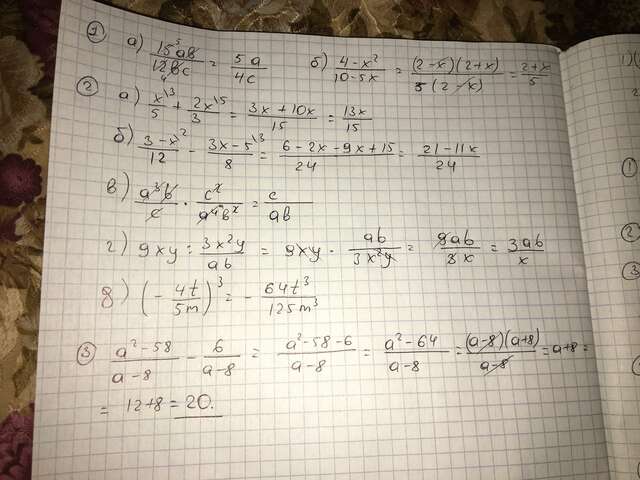 ① а) 15⁵ab/12₄bc = 5a/4c б) 4-x²/10-5x = (2-x)(2+x)/5(2-x) = 2+x/5
② а) x\³/5 + 2x\⁵/3 = 3x+10x/15 = 13x/15
б) 3-x\²/12 - 3x-5\³/8 = 6-2x-9x+15/24 = 21-11x/24
в) a³b/c · c²/a⁴b² = c/ab
г) 9xy : 3x²y/ab = 9xy · ab/3x²y = 9ab/3x = 3ab/x
д) (- 4t/5m)³ = - 64t³/125m³
③ a²-58/a-8 - 6/a-8 = a²-58-6/a-8 = a²-64/a-8 = (a-8)(a+8)/a-8 = a+8 =
= 12+8 = 20.
1)
①
②
③